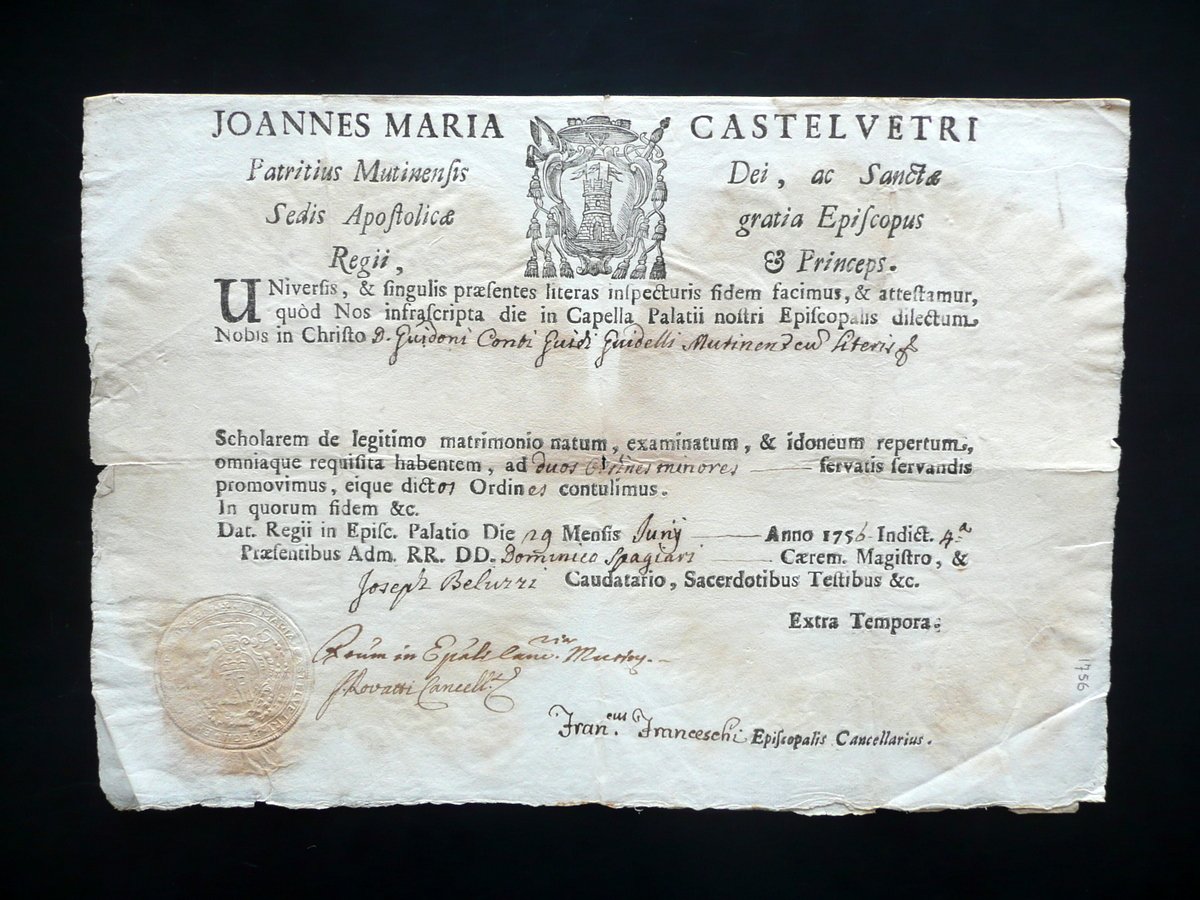 JOANNES MARIA CASTELVETRI
Patritius Mutinenſis Dei, ac Sanctæ
Sedis Apoſtolicæ gratia Epiſcopus
Regii, & Princeps.
UNiverſis, & ſingulis præſentes literas inſpecturis fidem facimus, & atteſtamur,
quòd Nos infraſcripta die in Capella Palatii noſtri Epiſcopalis dilectum
Nobis in Chriſto D. Guidoni Conti Guidi Guidelli Mutinen literis
Scholarem de legitimo matrimonio natum, examinatum, & idoneum repertum,
omniaque requiſita habentem, ad duos Ordines minores ſervatis ſervandis
promovimus, eique dictos Ordines contulimus.
In quorum fidem &c.
Dat. Regii in Epiſc. Palatio Die 29 Menſis Junij Anno 1756 Indict. 4.ª
Præſentibus Adm. RR. DD. Dominico Spagiari Cærem. Magiſtro, &
Joseph Beluzzi Caudatario, Sacerdotibus Teſtibus &c.
Extra Tempora.
in
J. Rovatti Cancell.
Fran.cus Franceschi Epiſcopalis Cancellarius.
1756